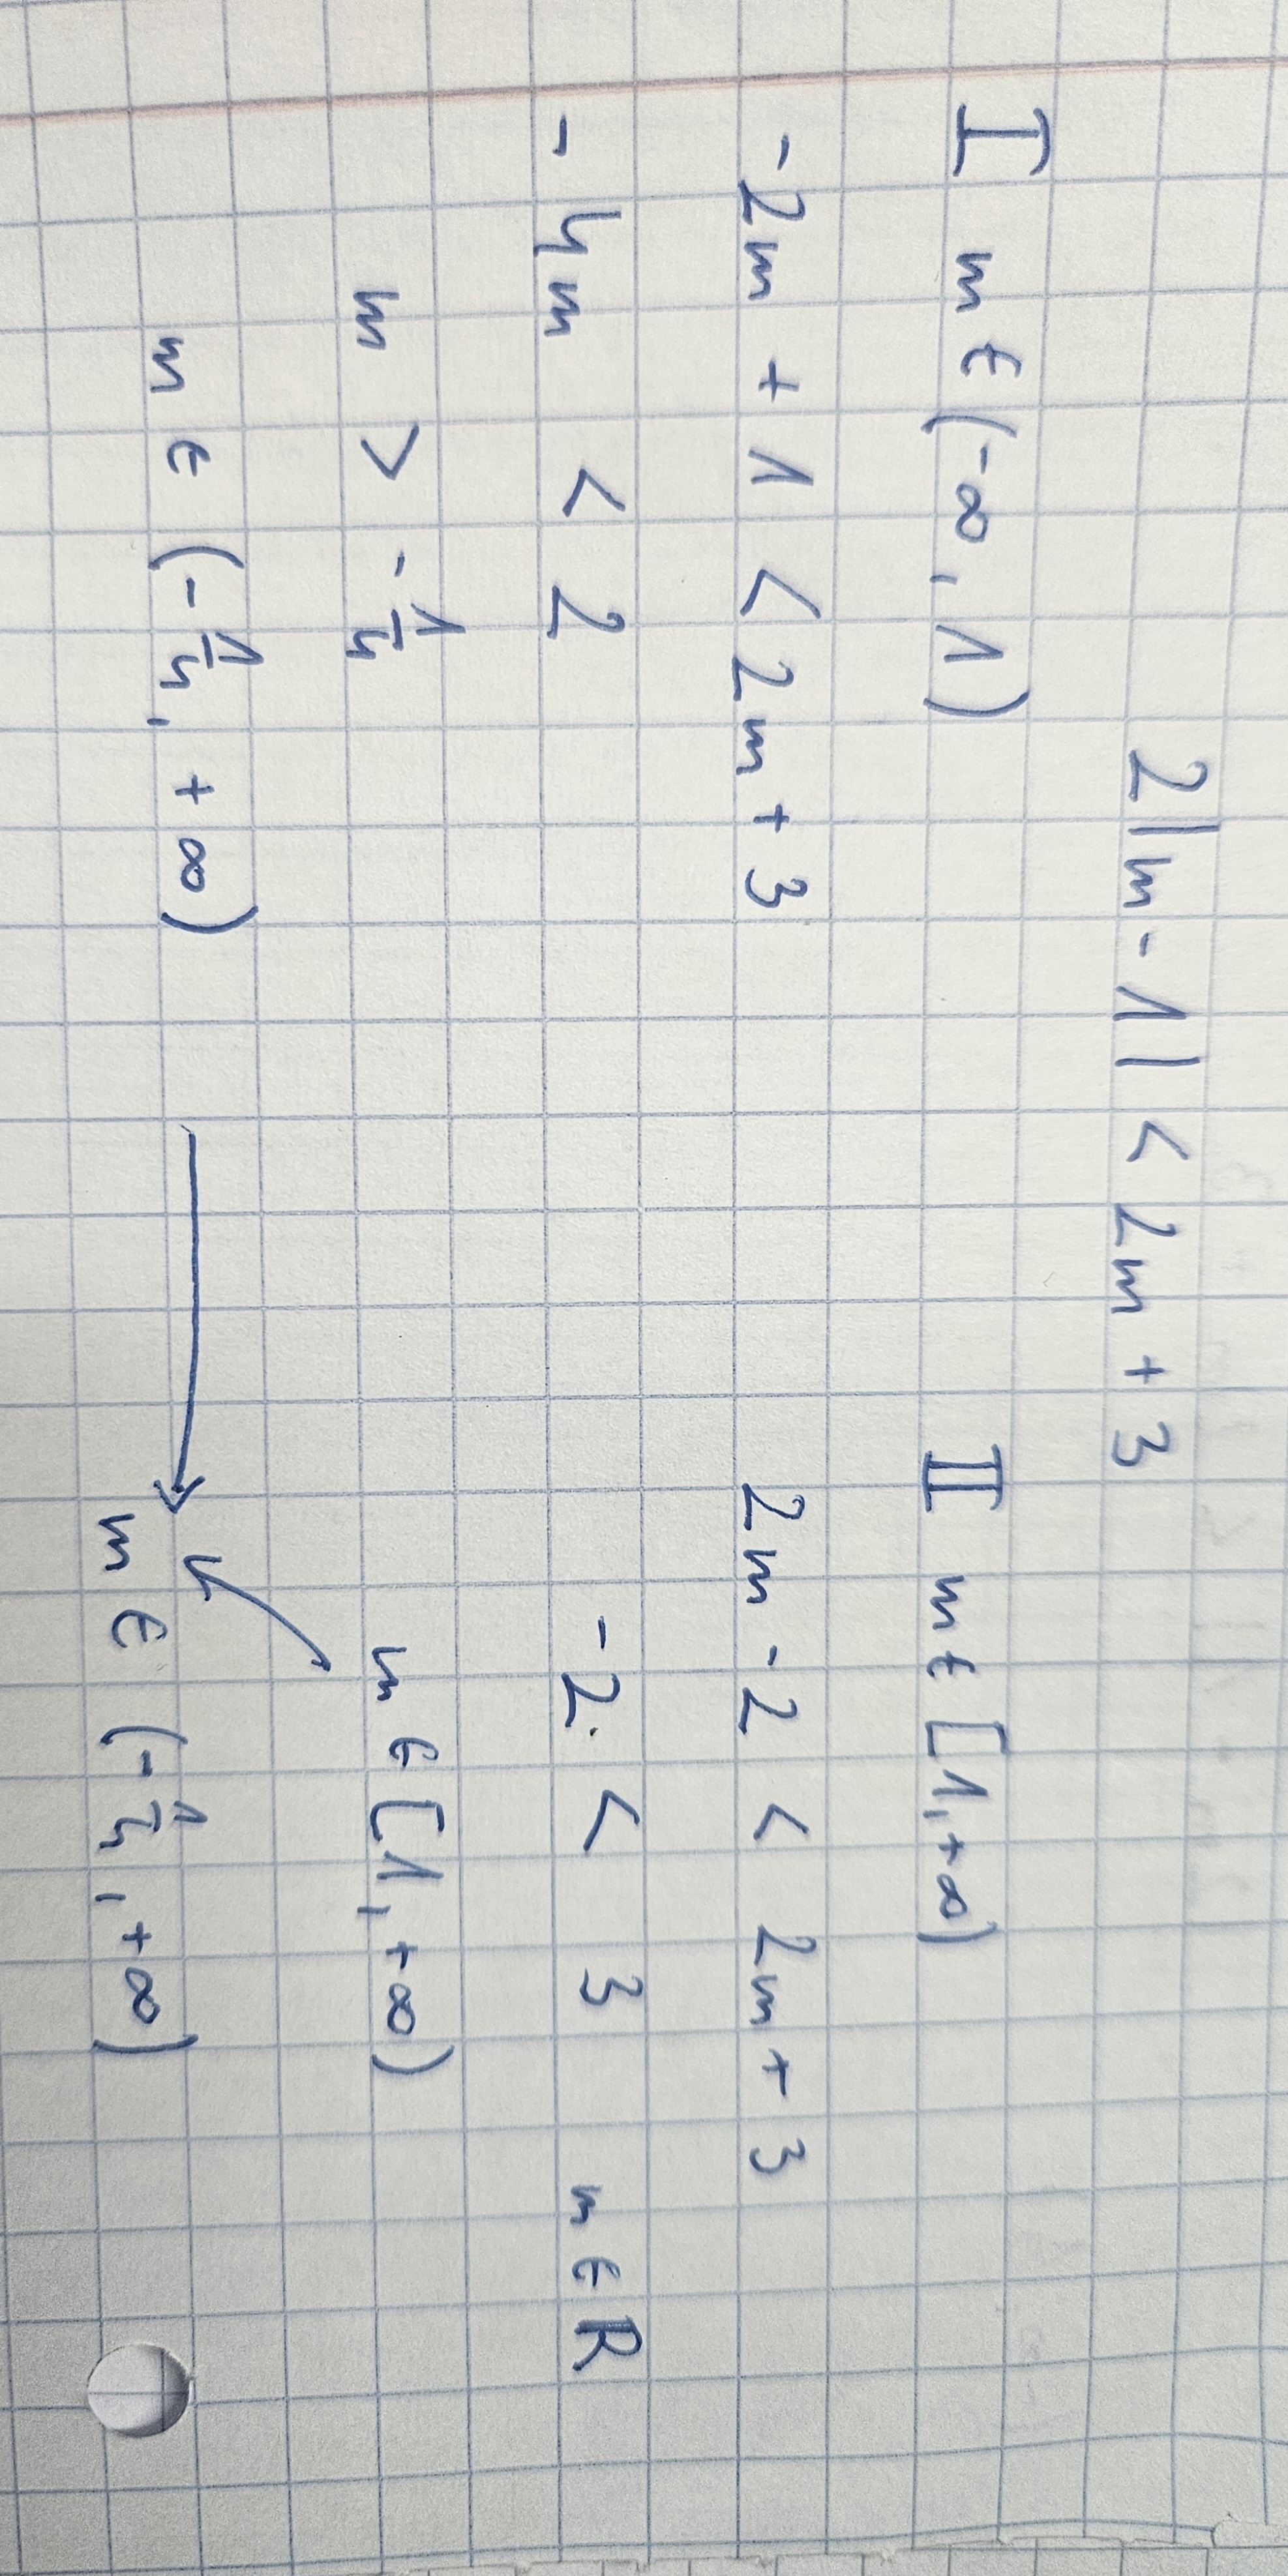 2|m-1| < 2m + 3
I m ∈ (-∞, 1)
-2m + 1 < 2m + 3
-4m < 2
m > -1/4
m ∈ (-1/4, +∞)
II m ∈ [1, +∞)
2m - 2 < 2m + 3
-2 < 3 m ∈ R
m ∈ [1, +∞)
m ∈ (-1/4, +∞)